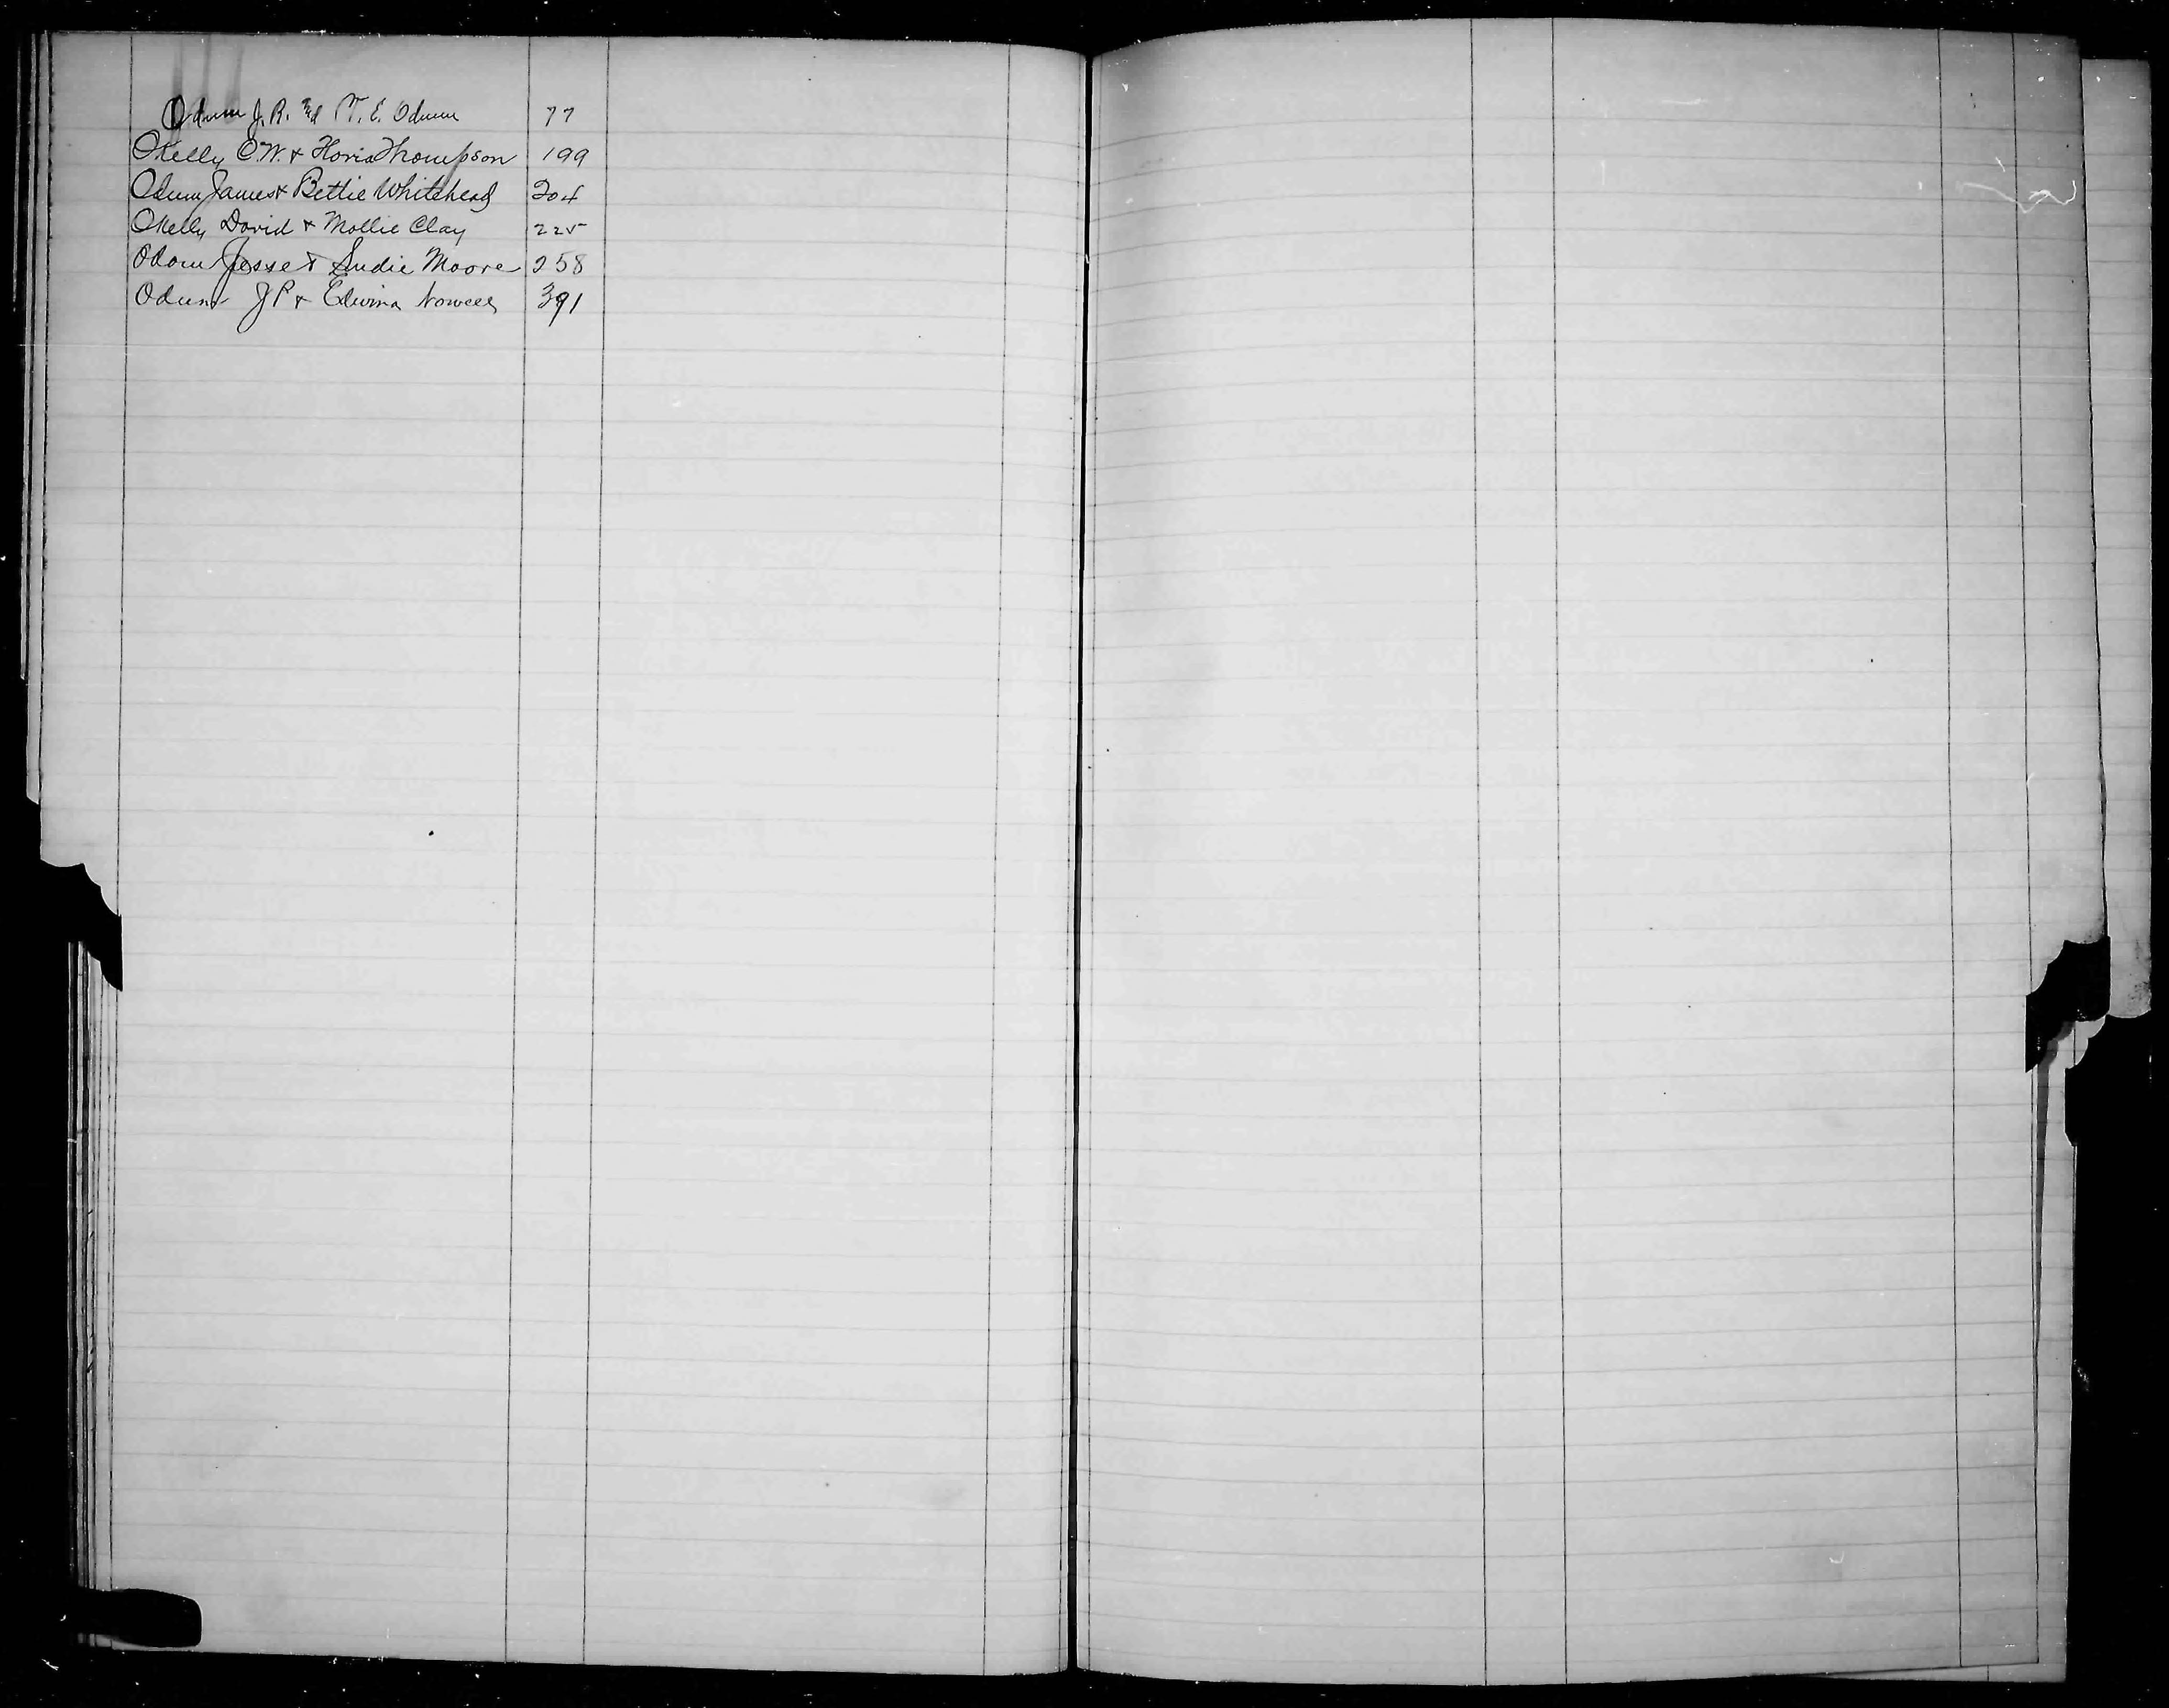 Odum J. R. and M. E. Odum 77
OKelly C. W. & Thompson 199
Odum James & Bettie Whitehead 204
OKelly David & Mollie Clay 225
Odom Jesse & Sudie Moore 258
Odum J P & Edwina Nowell 391